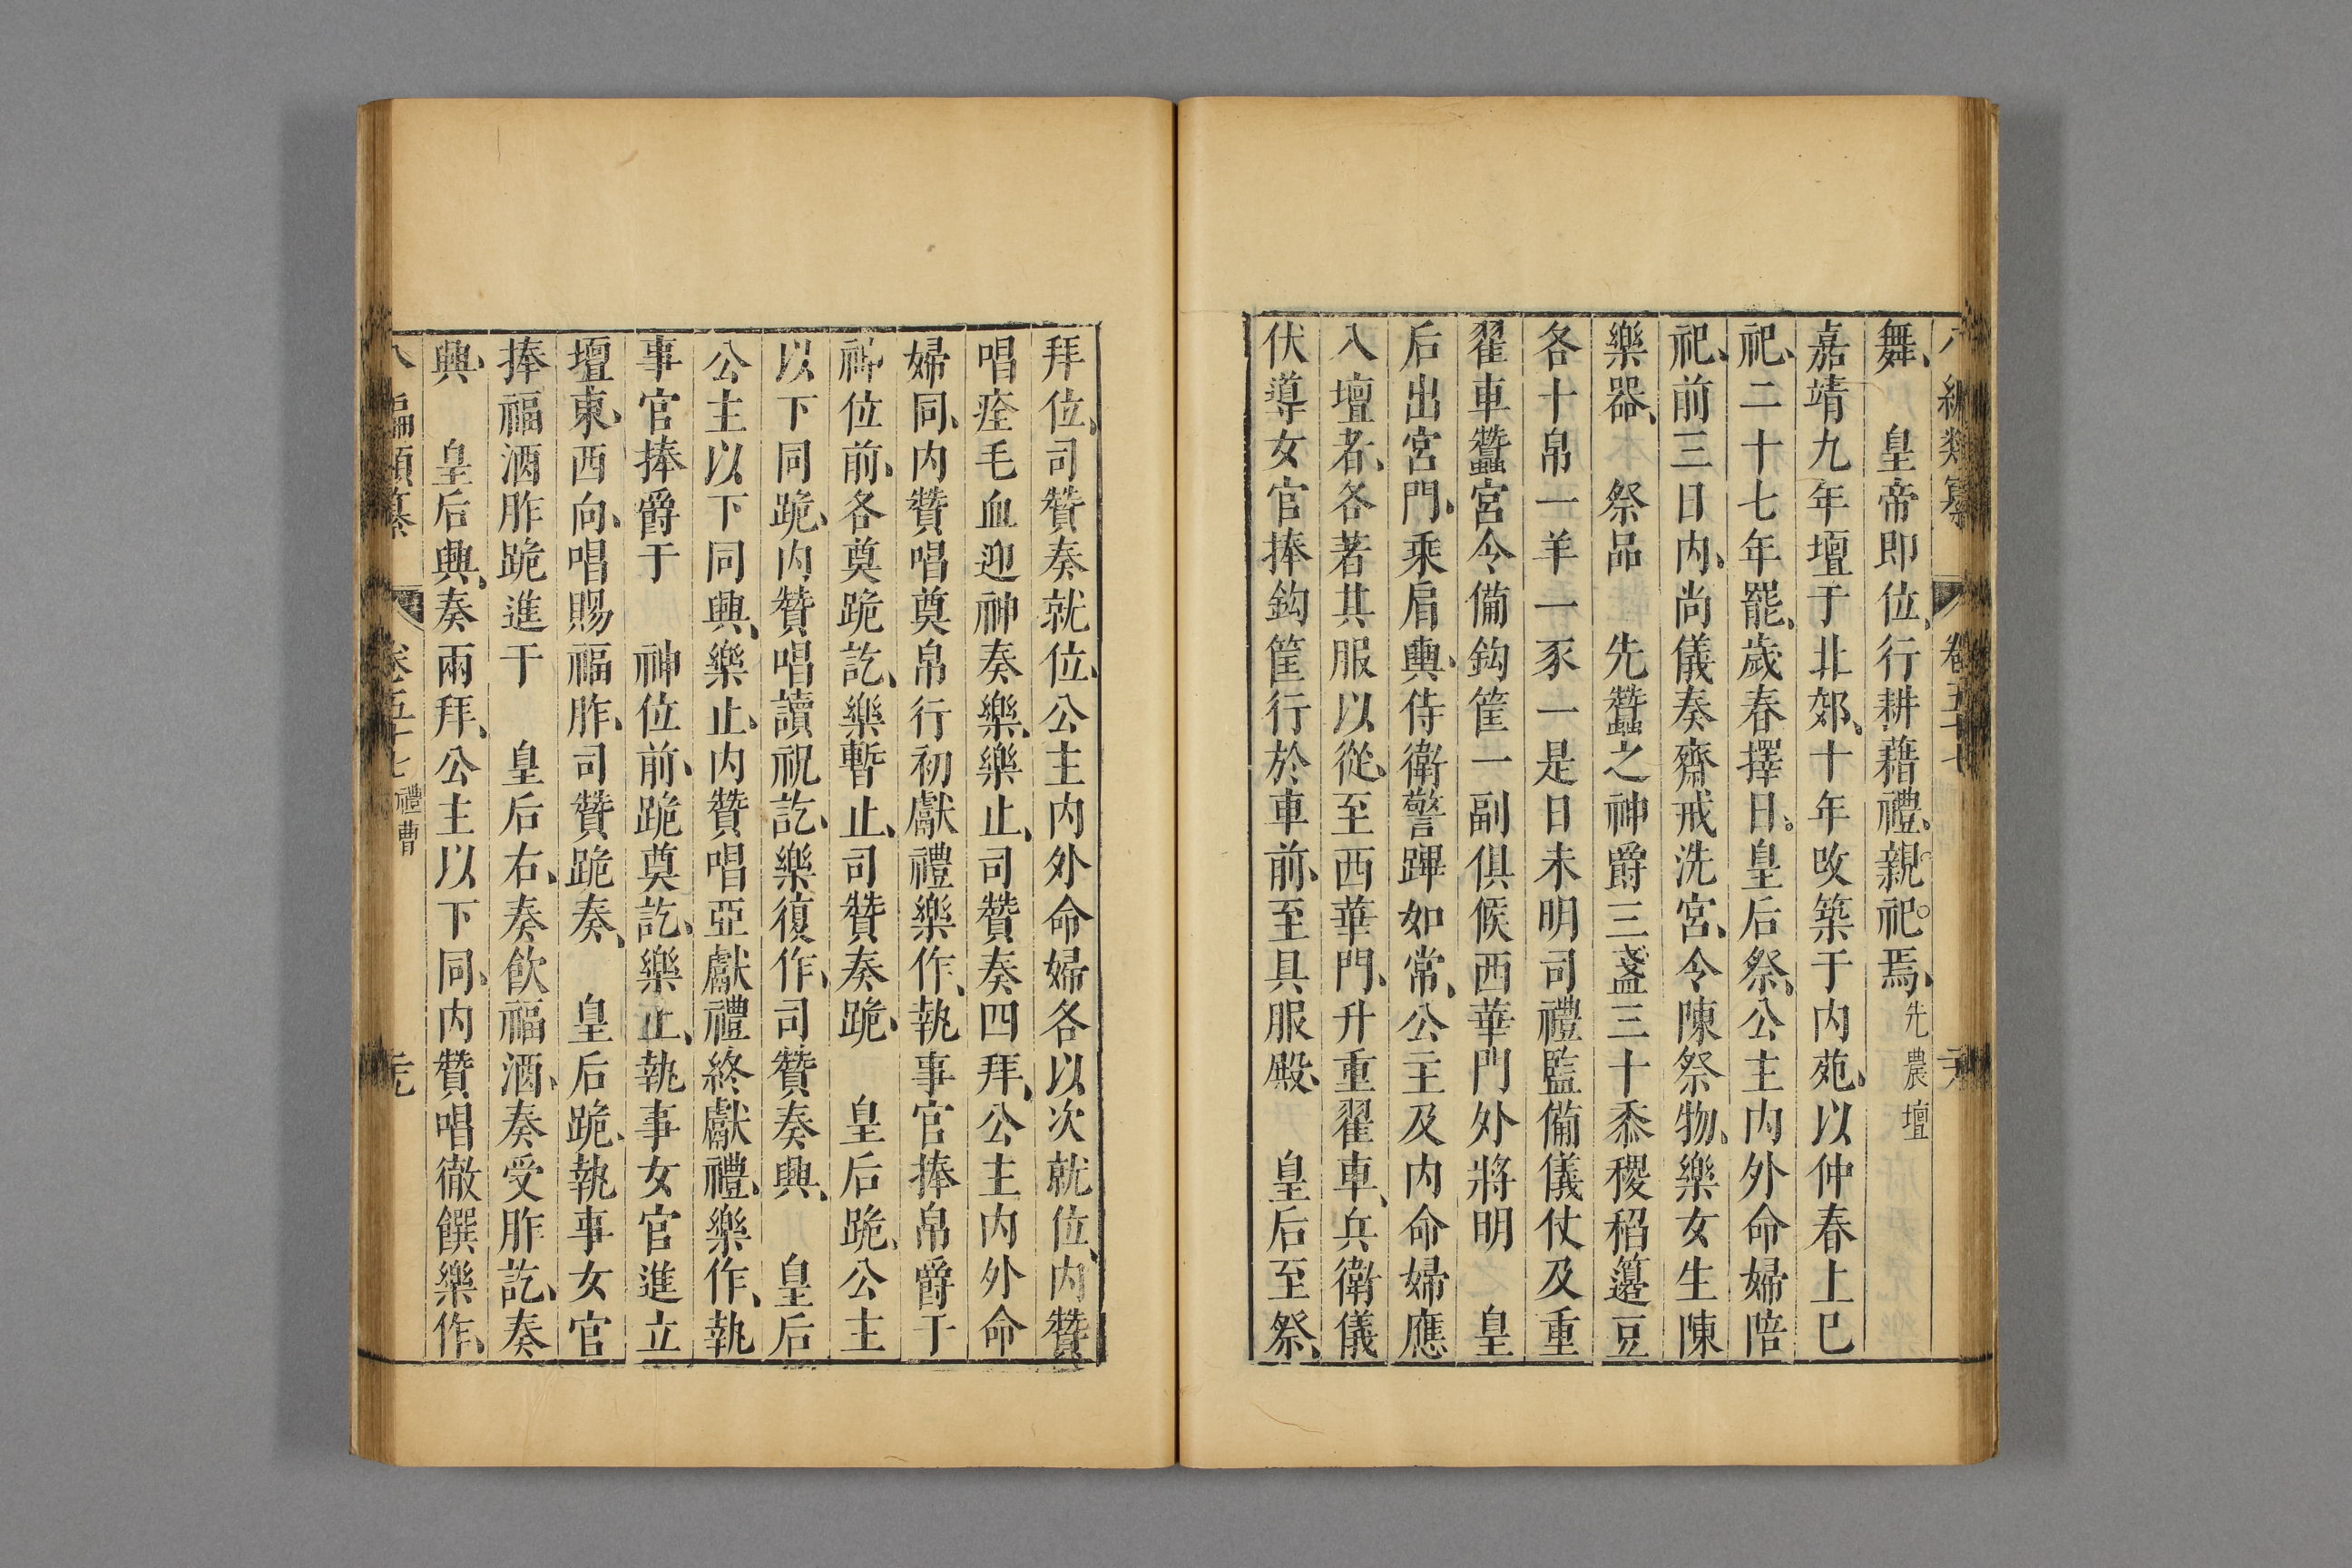 八編類纂 卷五十七
舞、 皇帝即位、行耕藉禮、親祀焉、先農壇
嘉靖九年壇于北郊、十年改築于内苑、以仲春上巳
祀、二十七年罷、歲春擇日。皇后祭、公主内外命婦陪
祀、前三日内、尚儀奏齋戒洗宮、令陳祭物、樂女生陳
樂器、 祭品 先蠶之神爵三盞三十黍稷稻籩豆
各十帛一羊一豕一是日未明司禮監備儀仗及重
翟車蠶宮令備鈎筐一副俱候西華門外將明 皇
后出宮門、乘肩輿、侍衛警蹕如常、公主及内命婦應
入壇者、各著其服以從、至西華門、升重翟車、兵衛儀
伏導女官捧鈎筐行於車前、至具服殿、 皇后至祭、
拜位、司贊奏就位、公主内外命婦各以次就位、内贊
唱瘞毛血迎神奏樂、樂止、司贊奏四拜、公主内外命
婦同、内贊唱奠帛行初獻禮樂作、執事官捧帛爵于
神位前、各奠跪訖、樂暫止、司贊奏跪、 皇后跪、公主
以下同跪、内贊唱讀祝訖、樂復作、司贊奏興、 皇后
公主以下同興、樂止、内贊唱亞獻禮終獻禮、樂作、執
事官捧爵于 神位前、跪奠訖、樂止、執事女官進立
壇東、西向、唱賜福胙、司贊跪奏、 皇后跪、執事女官
捧福酒胙跪進于 皇后右、奏飲福酒、奏受胙訖、奏
興、 皇后興、奏兩拜、公主以下同、内贊唱徹饌樂作、
八編類纂 卷五十七 禮曹